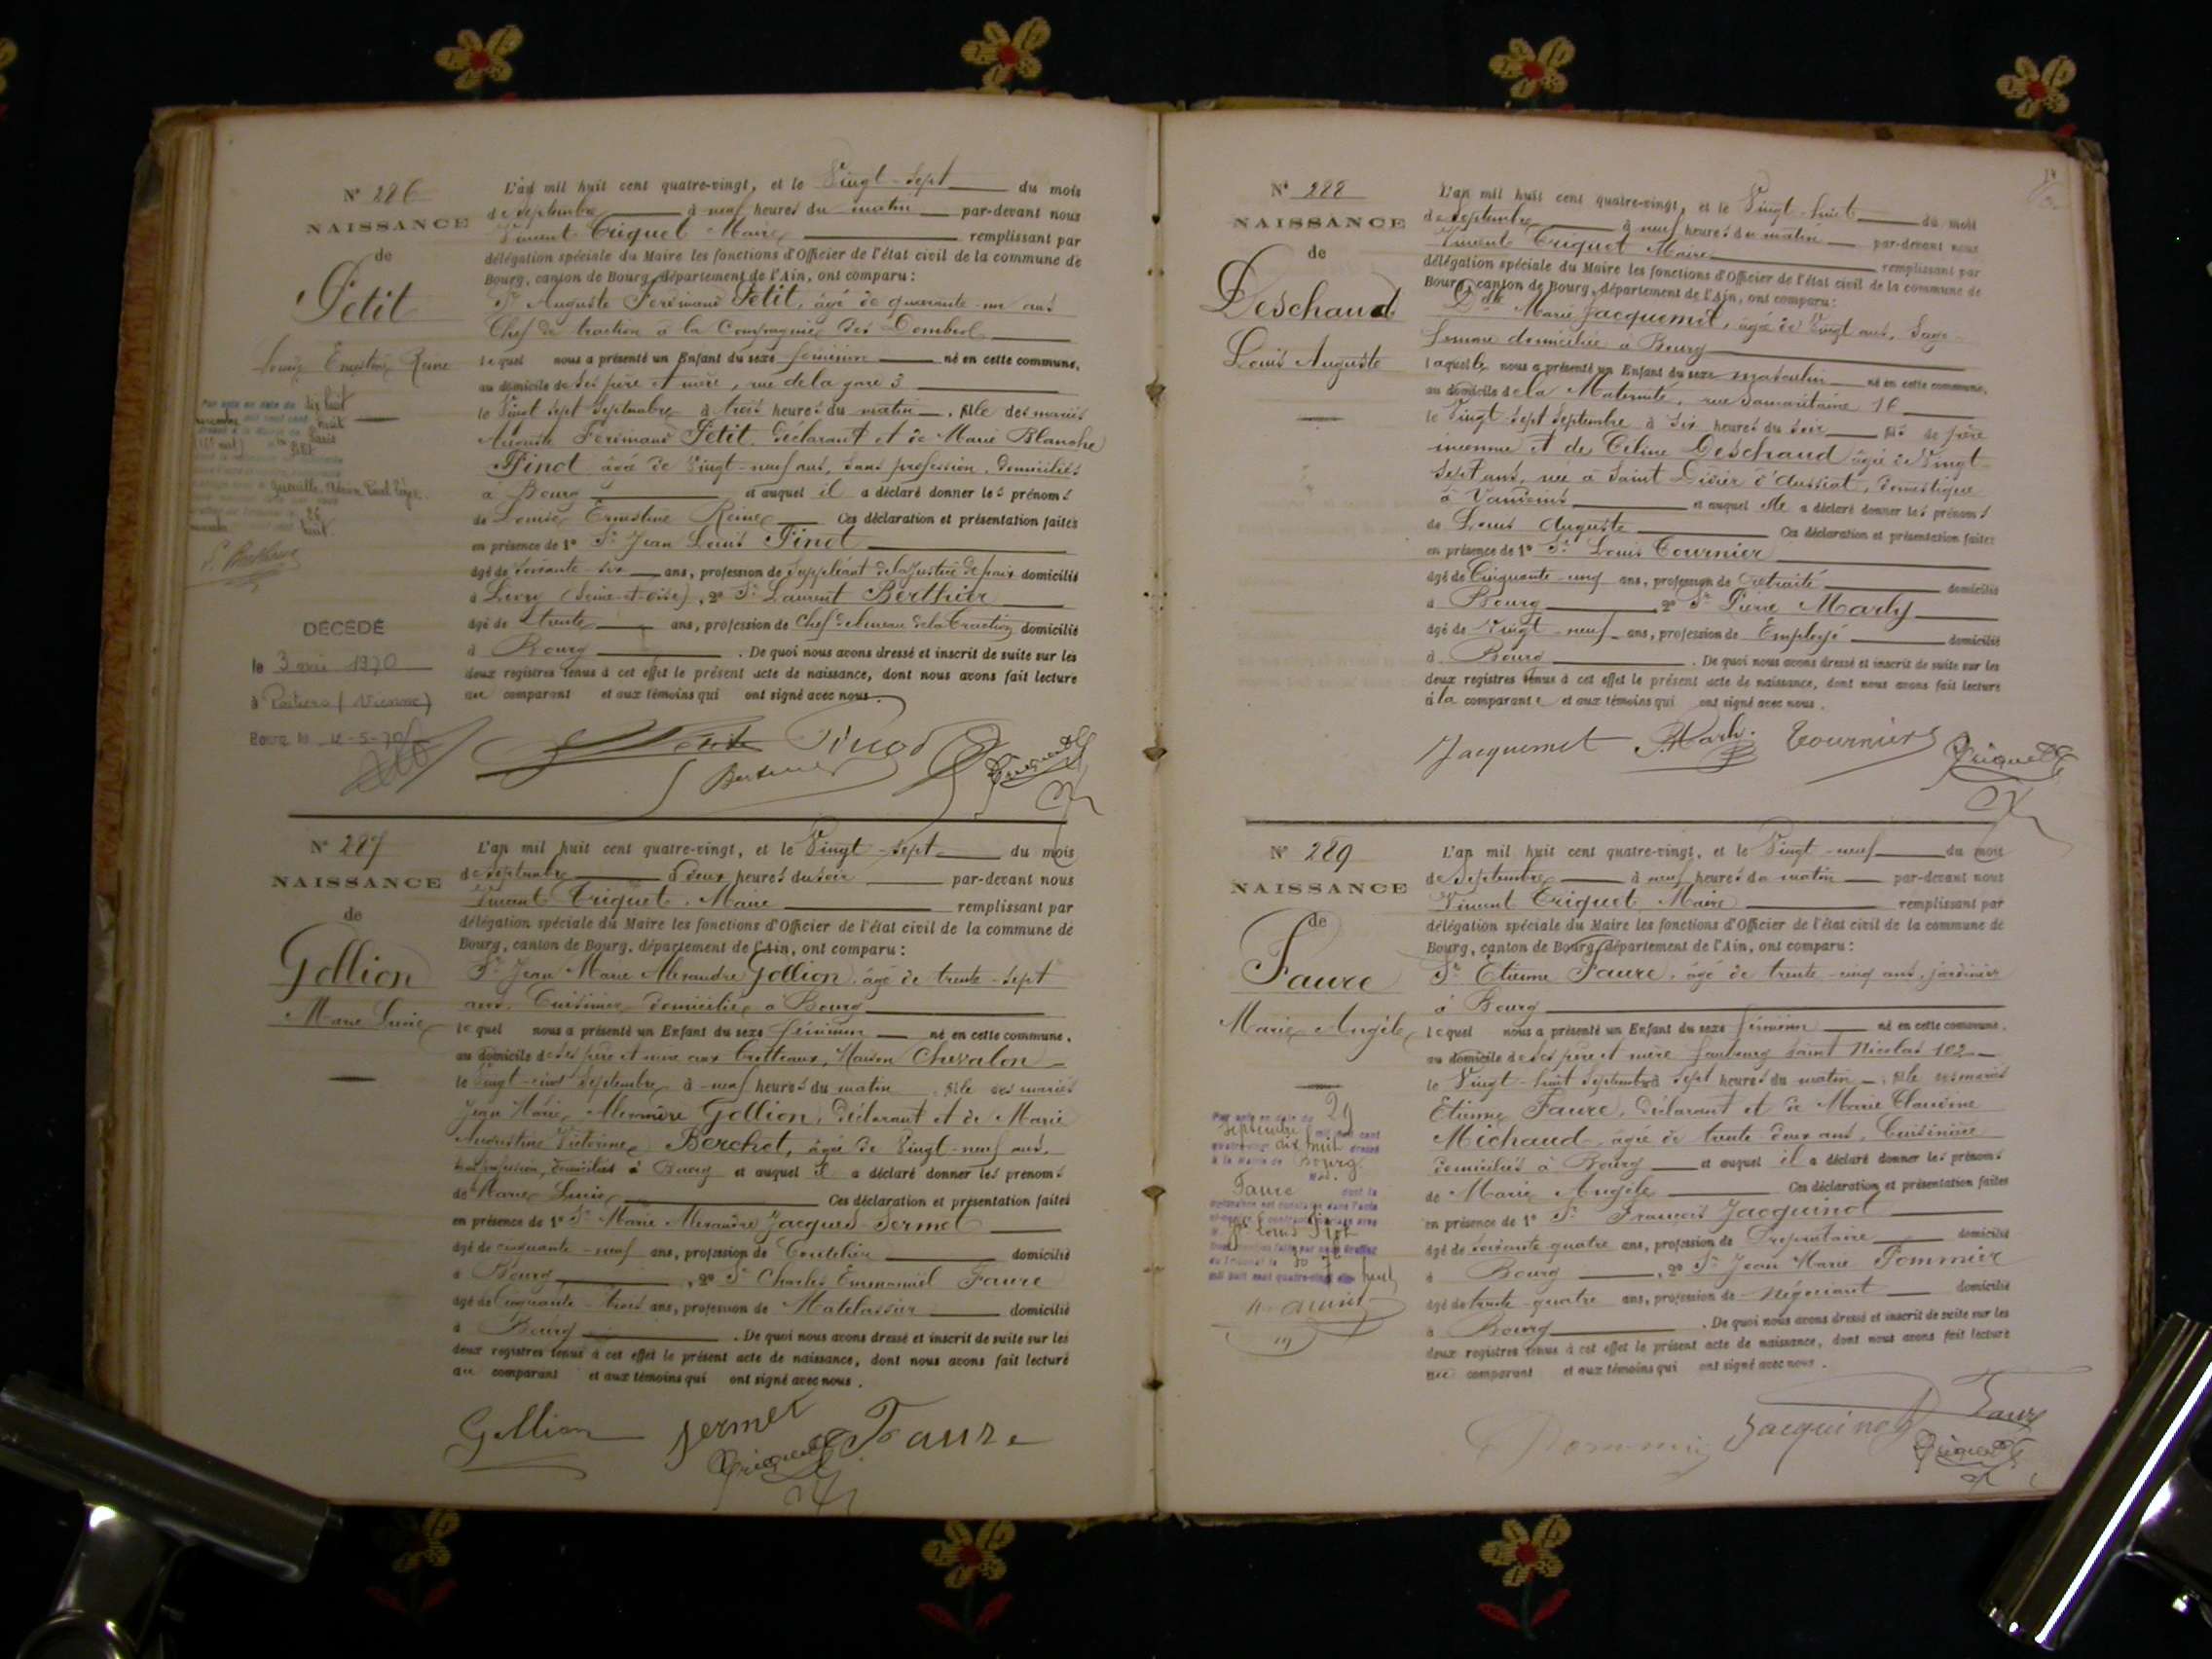 N° 286
NAISSANCE
de
Petit
Louise Ernestine Reine
DÉCÉDÉ
le 3 avril 1970
à Poitiers (Vienne)
L'an mil huit cent quatre-vingt, et le Vingt-sept du mois
de septembre à neuf heures du matin par-devant nous
Vincent Triquet Maire remplissant par
délégation spéciale du Maire les fonctions d'Officier de l'état civil de la commune de
Bourg, canton de Bourg, département de l'Ain, ont comparu :
Sr Auguste Ferdinand Petit, âgé de quarante-un ans
Chef de traction à la Compagnie des Dombes
lequel nous a présenté un Enfant du sexe féminin né en cette commune,
au domicile de ses père et mère, rue de la gare 3
le Vingt sept Septembre à trois heures du matin, fille des mariés
Auguste Ferdinand Petit, déclarant et de Marie Blanche
Pinot âgée de Vingt-neuf ans, sans profession, domiciliés
à Bourg et auquel il a déclaré donner les prénoms
de Louise Ernestine Reine Ces déclaration et présentation faites
en présence de 1° Sr Jean Louis Pinot
âgé de soixante six ans, profession de Suppléant de la Justice de paix domicilié
à (Seine-et-Oise), 2° Sr Laurent Berthier
âgé de trente ans, profession de Chef de bureau de la Traction domicilié
à Bourg. De quoi nous avons dressé et inscrit de suite sur les
deux registres tenus à cet effet le présent acte de naissance, dont nous avons fait lecture
au comparant et aux témoins qui ont signé avec nous.
Petit Pinot
Berthier Triquet
N° 287
NAISSANCE
de
Gollion
Marie Lucie
L'an mil huit cent quatre-vingt, et le Vingt-sept du mois
de septembre à deux heures du soir par-devant nous
Vincent Triquet, Maire remplissant par
délégation spéciale du Maire les fonctions d'Officier de l'état civil de la commune de
Bourg, canton de Bourg, département de l'Ain, ont comparu :
Sr Jean Marie Alexandre Gollion, âgé de trente-sept
ans, Cuisinier domicilié à Bourg
lequel nous a présenté un Enfant du sexe féminin né en cette commune,
au domicile de ses père et mère aux Brotteaux, Maison Chevalon
le Vingt-cinq Septembre à neuf heures du matin, fille des mariés
Jean Marie Alexandre Gollion, déclarant et de Marie
Augustine Victorine Berchet, âgée de Vingt-neuf ans,
sans profession, domiciliés à Bourg et auquel il a déclaré donner les prénoms
de Marie Lucie Ces déclaration et présentation faites
en présence de 1° Sr Marie Alexandre Jacques Sermet
âgé de cinquante-neuf ans, profession de Coutelier domicilié
à Bourg, 2° Sr Charles Emmanuel Faure
âgé de Cinquante-trois ans, profession de Matelassier domicilié
à Bourg. De quoi nous avons dressé et inscrit de suite sur les
deux registres tenus à cet effet le présent acte de naissance, dont nous avons fait lecture
au comparant et aux témoins qui ont signé avec nous.
Gollion Sermet Faure
Triquet
N° 288
NAISSANCE
de
Deschaud
Louis Auguste
L'an mil huit cent quatre-vingt, et le Vingt-huit du mois
de septembre à neuf heures du matin par-devant nous
Vincent Triquet Maire remplissant par
délégation spéciale du Maire les fonctions d'Officier de l'état civil de la commune de
Bourg, canton de Bourg, département de l'Ain, ont comparu :
Dlle Marie Jacquemet, âgée de Vingt ans, Sage-
femme domiciliée à Bourg
laquelle nous a présenté un Enfant du sexe masculin né en cette commune,
au domicile de la Maternité, rue Samaritaine 16
le Vingt sept Septembre à six heures du soir fils de père
inconnu et de Céline Deschaud âgée de Vingt-
sept ans, née à Saint Didier d'Aussiat, domestique
à Vandeins et auquel elle a déclaré donner les prénoms
de Louis Auguste Ces déclaration et présentation faites
en présence de 1° Sr Louis Tournier
âgé de Cinquante-cinq ans, profession de retraité domicilié
à Bourg, 2° Sr Pierre Marly
âgé de Vingt-neuf ans, profession de Employé domicilié
à Bourg. De quoi nous avons dressé et inscrit de suite sur les
deux registres tenus à cet effet le présent acte de naissance, dont nous avons fait lecture
à la comparante et aux témoins qui ont signé avec nous.
Jacquemet Tournier Triquet
N° 289
NAISSANCE
de
Faure
Marie Angèle
Par acte en date du 29
septembre mil huit cent
quatre-vingt dix huit dressé
à la Mairie de Bourg
Faure
L'an mil huit cent quatre-vingt, et le Vingt-neuf du mois
de Septembre à neuf heures du matin par-devant nous
Vincent Triquet, Maire remplissant par
délégation spéciale du Maire les fonctions d'Officier de l'état civil de la commune de
Bourg, canton de Bourg, département de l'Ain, ont comparu :
Sr Etienne Faure, âgé de trente-cinq ans, jardinier
à Bourg
lequel nous a présenté un Enfant du sexe féminin né en cette commune,
au domicile de ses père et mère faubourg Saint Nicolas 102
le Vingt-huit Septembre à sept heures du matin, fille des mariés
Etienne Faure, déclarant et de Marie Claudine
Michaud âgée de trente-deux ans, Cuisinière
domiciliés à Bourg et auquel il a déclaré donner les prénoms
de Marie Angèle Ces déclaration et présentation faites
en présence de 1° Sr François Jacquinot
âgé de soixante-quatre ans, profession de Propriétaire domicilié
à Bourg, 2° Sr Jean Marie Pommier
âgé de trente-quatre ans, profession de Négociant domicilié
à Bourg. De quoi nous avons dressé et inscrit de suite sur les
deux registres tenus à cet effet le présent acte de naissance, dont nous avons fait lecture
au comparant et aux témoins qui ont signé avec nous.
Pommier Jacquinot Faure
Triquet